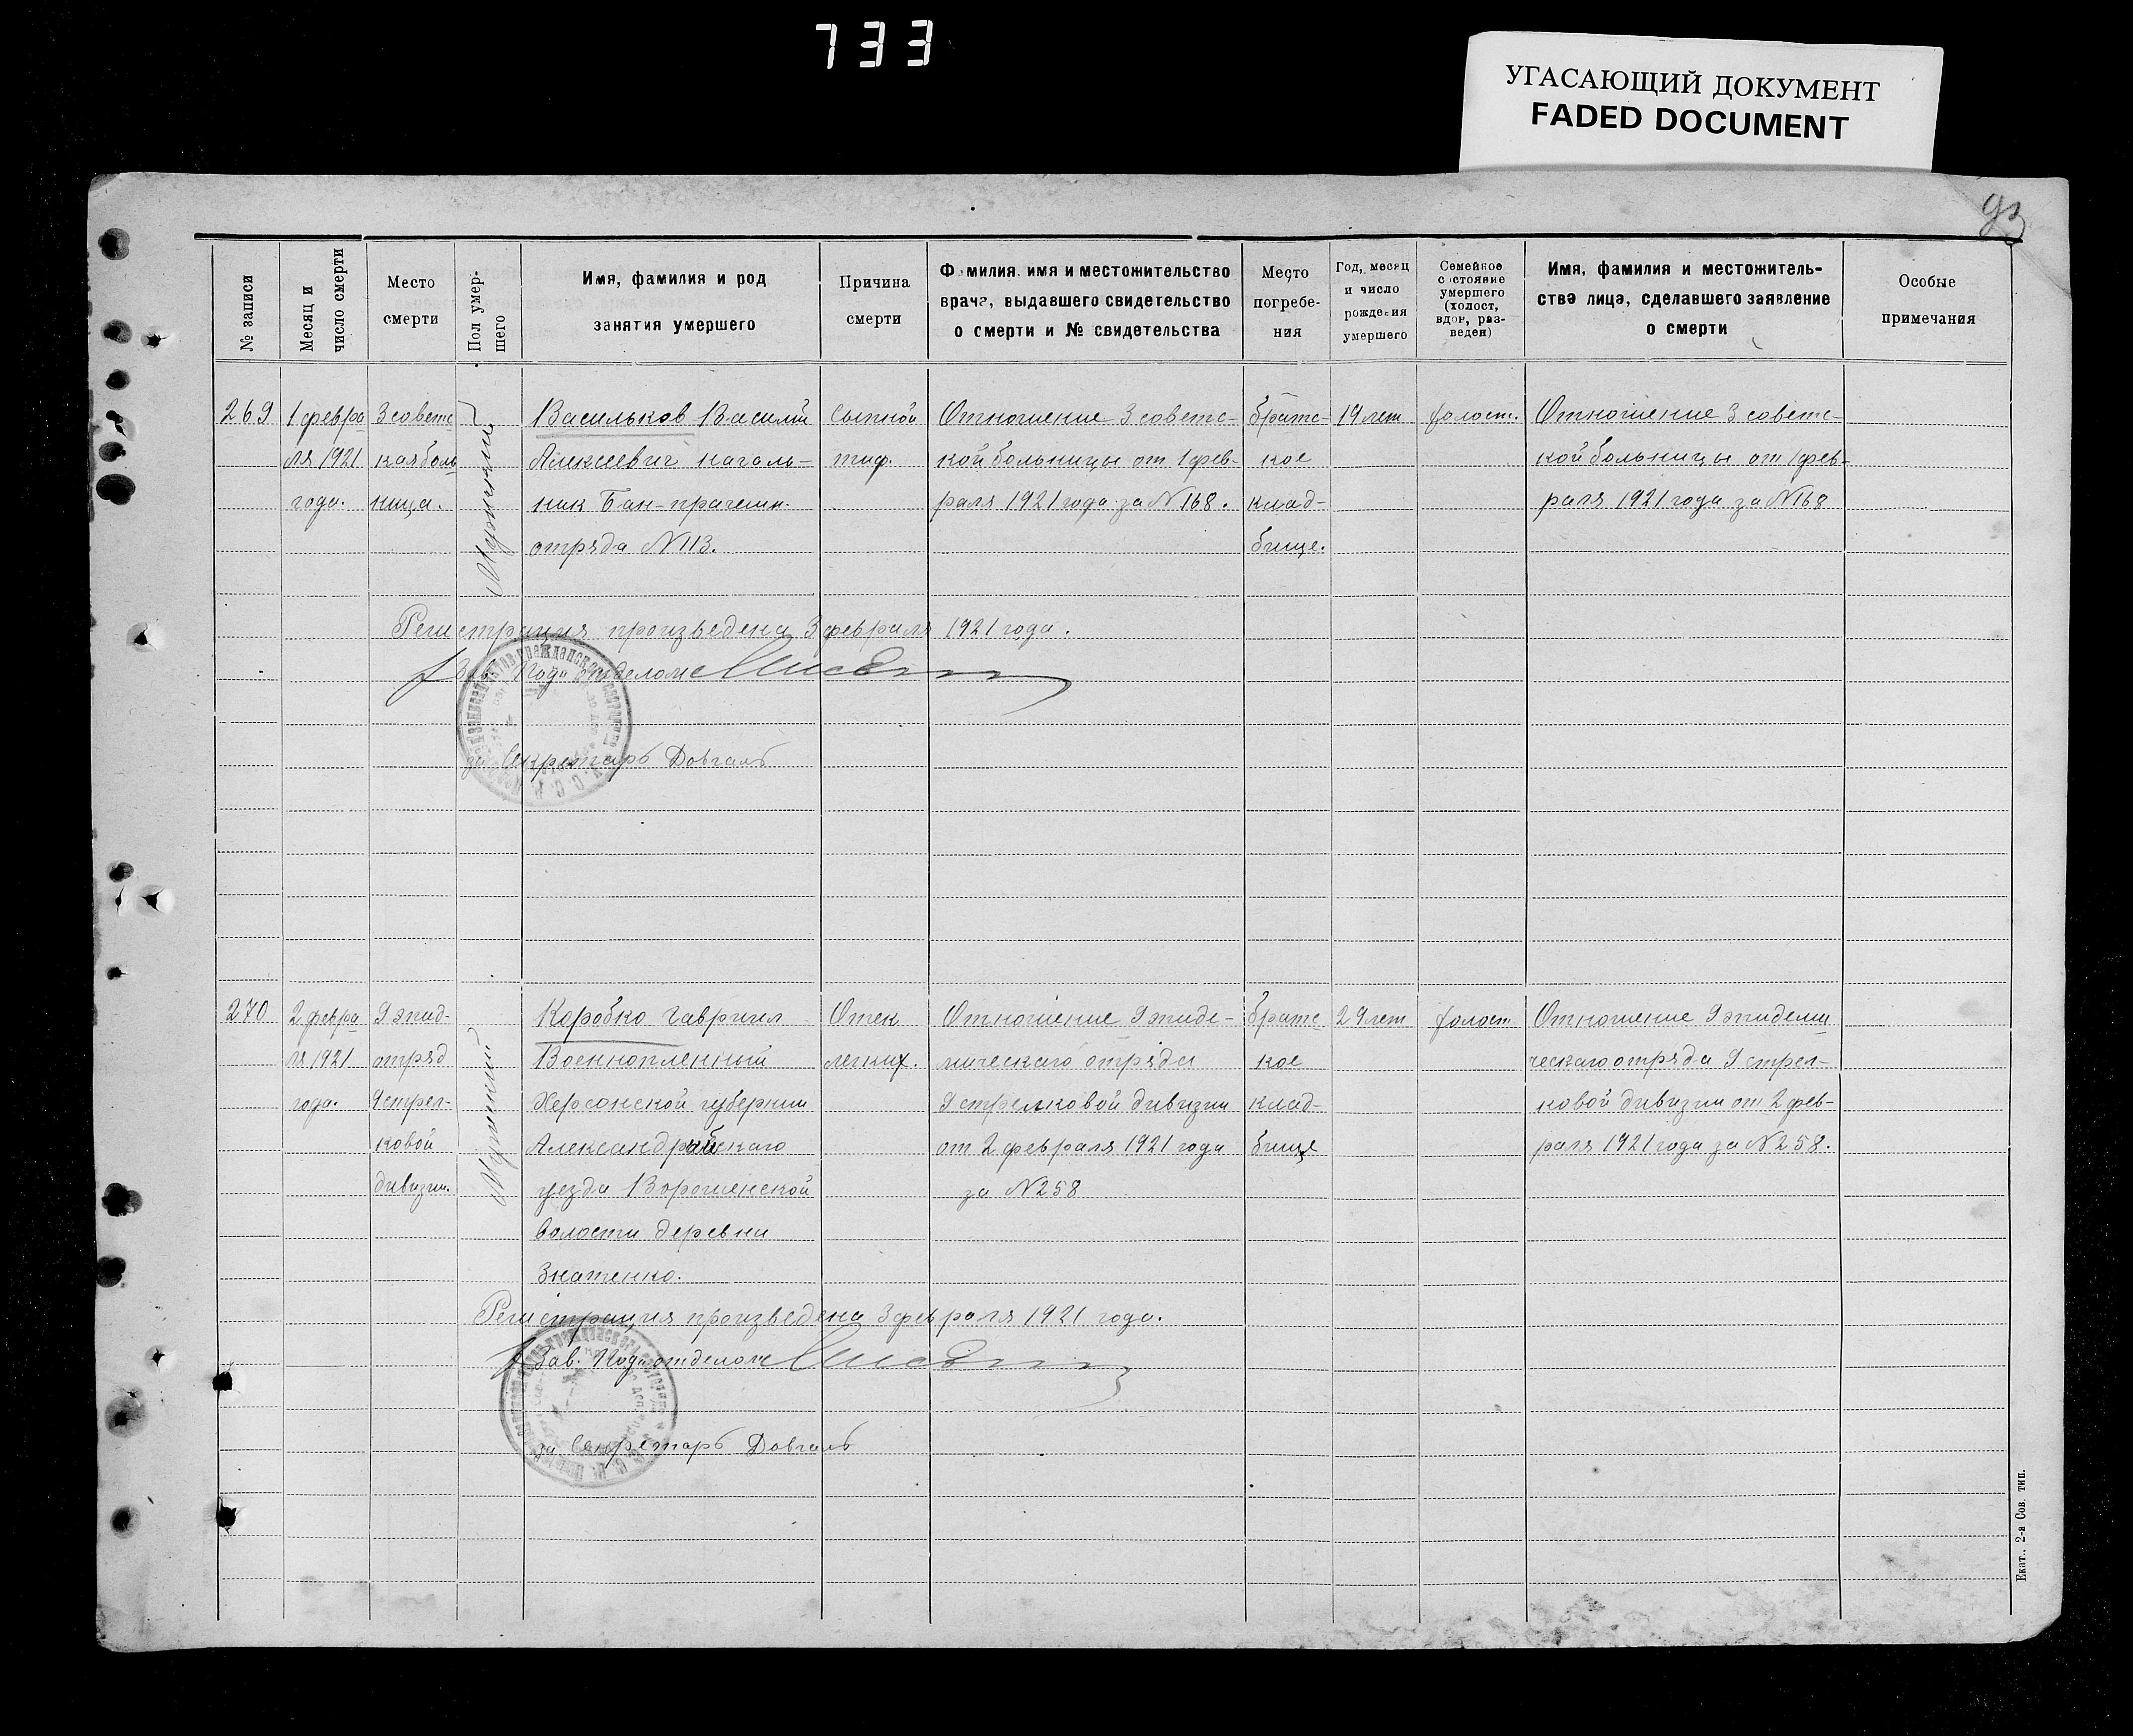 733
УГАСАЮЩИЙ ДОКУМЕНТ
FADED DOCUMENT
93
№ записи
Месяц и
число смерти
Место
смерти
Пол умер-
шего
Имя, фамилия и род
занятия умершего
Причина
смерти
Фамилия, имя и местожительство
врача, выдавшего свидетельство
о смерти и № свидетельства
Место
погребе-
ния
Год, месяц
и число
рождения
умершего
Семейное
состояние
умершего
(холост,
вдов, раз-
веден)
Имя, фамилия и местожитель-
ство лица, сделавшего заявление
о смерти
Особые
примечания
269
1 февра
ля 1921
года.
3 советс
кая боль
ница.
Мужской
Васильков Василий
Алексеевич началь-
ник Бан-прачешн.
отряда №113.
Сыпной
тиф.
Отношение 3 советс-
кой больницы от 1 фев-
раля 1921 года за №168.
братс-
кое
клад-
бище.
19 лет
холост.
Отношение 3 советс-
кой больницы от 1 фев-
раля 1921 года за №168
Регистрация произведена 3 февраля 1921 года.
Зав. Подотделом
за Секретарь Довгаль
270
2 февра
ля 1921
года.
9 эпид-
отряд
9 стрел-
ковой
дивизии.
Мужской
Коробко Гавриил
Военнопленный
Херсонской губернии
Александрийскаго
уезда
волости деревни
Знатенко.
Отек
легких.
Отношение 9 эпиде-
мическаго отряда
9 стрелковой дивизии
от 2 февраля 1921 года
за №258
братс
кое
клад-
бище
29 лет
холост
Отношение 9 эпидеми
ческаго отряда 9 стрел-
ковой дивизии от 2 фев-
раля 1921 года за №258.
Регистрация произведена 3 февраля 1921 года.
Зав. Подотделом
за Секретарь Довгаль
Екат.. 2-я Сов. тип.